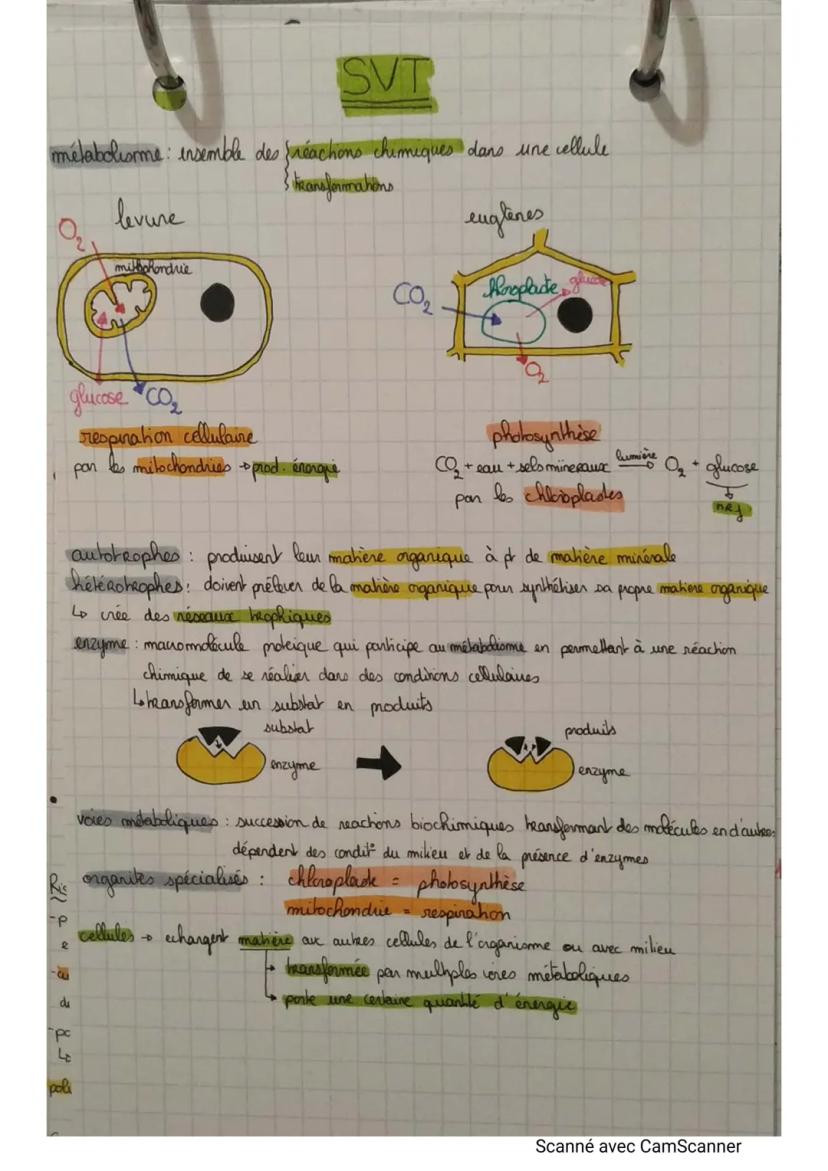 SVT
métabolisme : ensemble des { réactions chimiques dans une cellule
transformations
levure
euglènes
O₂
mitochondrie
CO₂
chloroplaste
glucose
O₂
glucose
CO₂
respiration cellulaire
par les mitochondries → prod. énergie
photosynthèse
CO₂ + eau + sels mineraux lumière → O₂ + glucose
par les chloroplastes
nrj
autotrophes : produisent leur matière organique à pr de matière minérale
hétérotrophes : doivent prélever de la matière organique pour synthétiser sa propre matière organique
↳ crée des réseaux trophiques
enzyme : macromolécule proteique qui participe au métabolisme en permettant à une réaction
chimique de se réaliser dans des conditions cellulaires
↳ transformer un substrat en produits
substrat
enzyme
produits
enzyme
voies métaboliques : succession de reactions biochimiques transformant des molécules en d'autres
dépendent des condit° du milieu et de la présence d'enzymes
organites spécialisés : chloroplaste = photosynthèse
mitochondrie = respiration
cellules → echangent matière aux autres cellules de l'organisme ou avec milieu
→ transformée par multiples voies métaboliques
→ porte une certaine quantité d'énergie
Scanné avec CamScanner